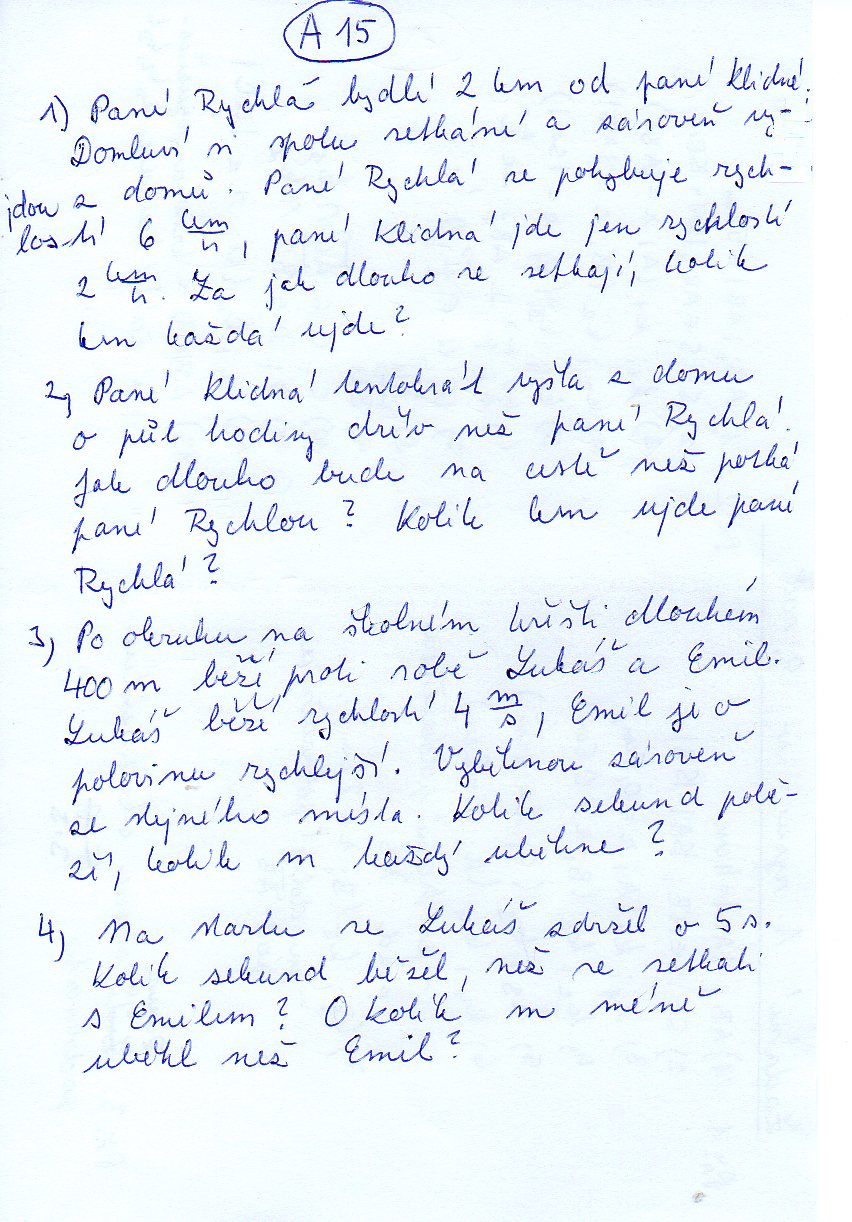 A 15
1) Paní Rychlá bydlí 2 km od paní Klidné.
Domluví si spolu setkání a zároveň vy-
jdou z domů. Paní Rychlá se pohybuje rych-
lostí 6 km/h, paní Klidná jde jen rychlostí
2 km/h. Za jak dlouho se setkají, kolik
km každá ujde?
2, Paní Klidná tentokrát vyšla z domu
o půl hodiny dřív než paní Rychlá.
Jak dlouho bude na cestě než potká
paní Rychlou? Kolik km ujde paní
Rychlá?
3, Po okruhu na školním hřišti dlouhém
400 m běží proti sobě Lukáš a Emil.
Lukáš běží rychlostí 4 m/s, Emil je o
polovinu rychlejší. Vyběhnou zároveň
ze stejného místa. Kolik sekund pobě-
ží, kolik m každý uběhne?
4) Na startu se Lukáš zdržel o 5 s.
Kolik sekund běžel, než se setkali
s Emilem? O kolik m méně
uběhl než Emil?